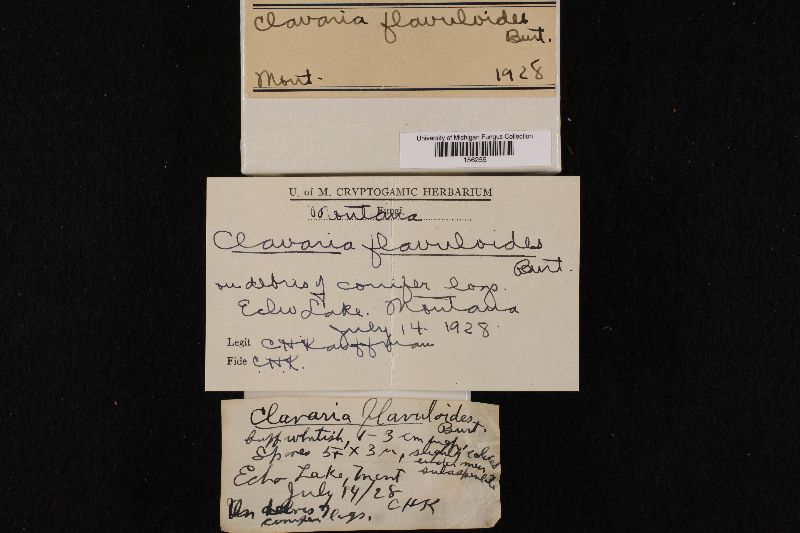 Clavaria flavuloides
Burt.
Mont. 1928
University of Michigan Fungus Collection
156255
U. of M. CRYPTOGAMIC HERBARIUM
Fungi
Montana
Clavaria flavuloides
Burt.
on debris of conifer logs.
Echo Lake. Montana
July 14 1928
Legit CHKauffman
Fide CHK.
Clavaria flavuloides
Burt.
buff whitish, 1-3 cm high,
Spores 5+ x 3 µ, slightly
Echo Lake, Mont
July 14/28
CHK
On debris of
conifer logs.